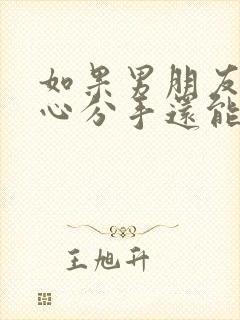 如果男朋友
心分手還能
王旭升